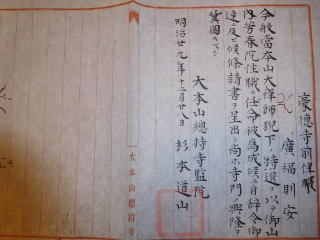 豪徳寺前住職
廣福則安
今般當本山大禅師猊下特選ヲ以御山
内芳春院住職ニ任命被為成候ニ付辞令御
達ニ及ビ候條請書ヲ呈出シ尚ホ寺門興隆ヲ
冀圖スベシ
大本山總持寺監院
明治廿九年十二月廿八日 杉本道山
大本山總持寺